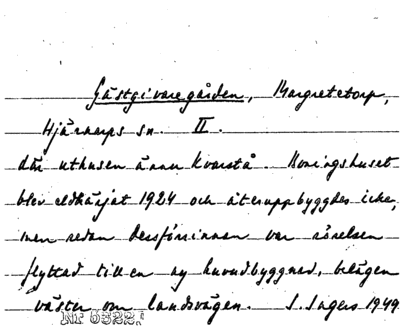 Gästgivaregården, Margretetorp,
Hjärnarps sn. II.
där uthusen ännu kvarstå. Boningshuset
blev eldhärjat 1924 och återuppbyggdes icke,
men redan dessförinnan var rörelsen
flyttad till en ny huvudbyggnad, belägen
väster om landsvägen. S. 1949.
Nr 6322